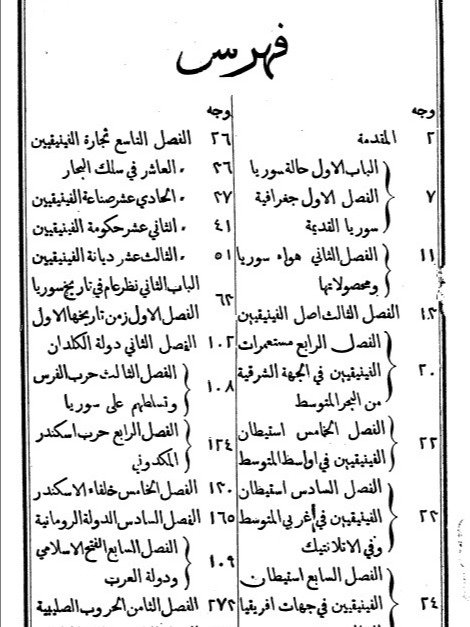 فهرس
وجه
٢ المقدمة
الباب الاول حالة سوريا
٧ الفصل الاول جغرافية
سوريا القديمة
١١ الفصل الثاني هواء سوريا
ومحصولاتها
١٣ الفصل الثالث اصل الفينيقيين
الفصل الرابع مستعمرات
٢٠ الفينيقيين في الجهة الشرقية
من البحر المتوسط
الفصل الخامس استيطان
٢٢ الفينيقيين في اواسط المتوسط
الفصل السادس استيطان
٢٣ الفينيقيين في أغربي المتوسط
وفي الاتلانتيك
الفصل السابع استيطان
٢٤ الفينيقيين في جهات افريقيا
وجه
٢٦ الفصل التاسع تجارة الفينيقيين
٣٦ ״ العاشر في سلك البحار
٣٧ ״ الحادي عشر صناعة الفينيقيين
٤١ ״ الثاني عشر حكومة الفينيقيين
٥١ ״ الثالث عشر ديانة الفينيقيين
الباب الثاني نظر عام في تاريخ سوريا
٦٢ الفصل الاول زمن تاريخها الاول
١٠٢ الفصل الثاني دولة الكلدان
١٠٨ الفصل الثالث حرب الفرس
وتسلطهم على سوريا
١٢٤ الفصل الرابع حرب اسكندر
المكدوني
١٣٠ الفصل الخامس خلفاء الاسكندر
١٦٥ الفصل السادس الدولة الرومانية
١٠٩ الفصل السابع الفتح الاسلامي
ودولة العرب
٢٧٢ الفصل الثامن الحروب الصليبية